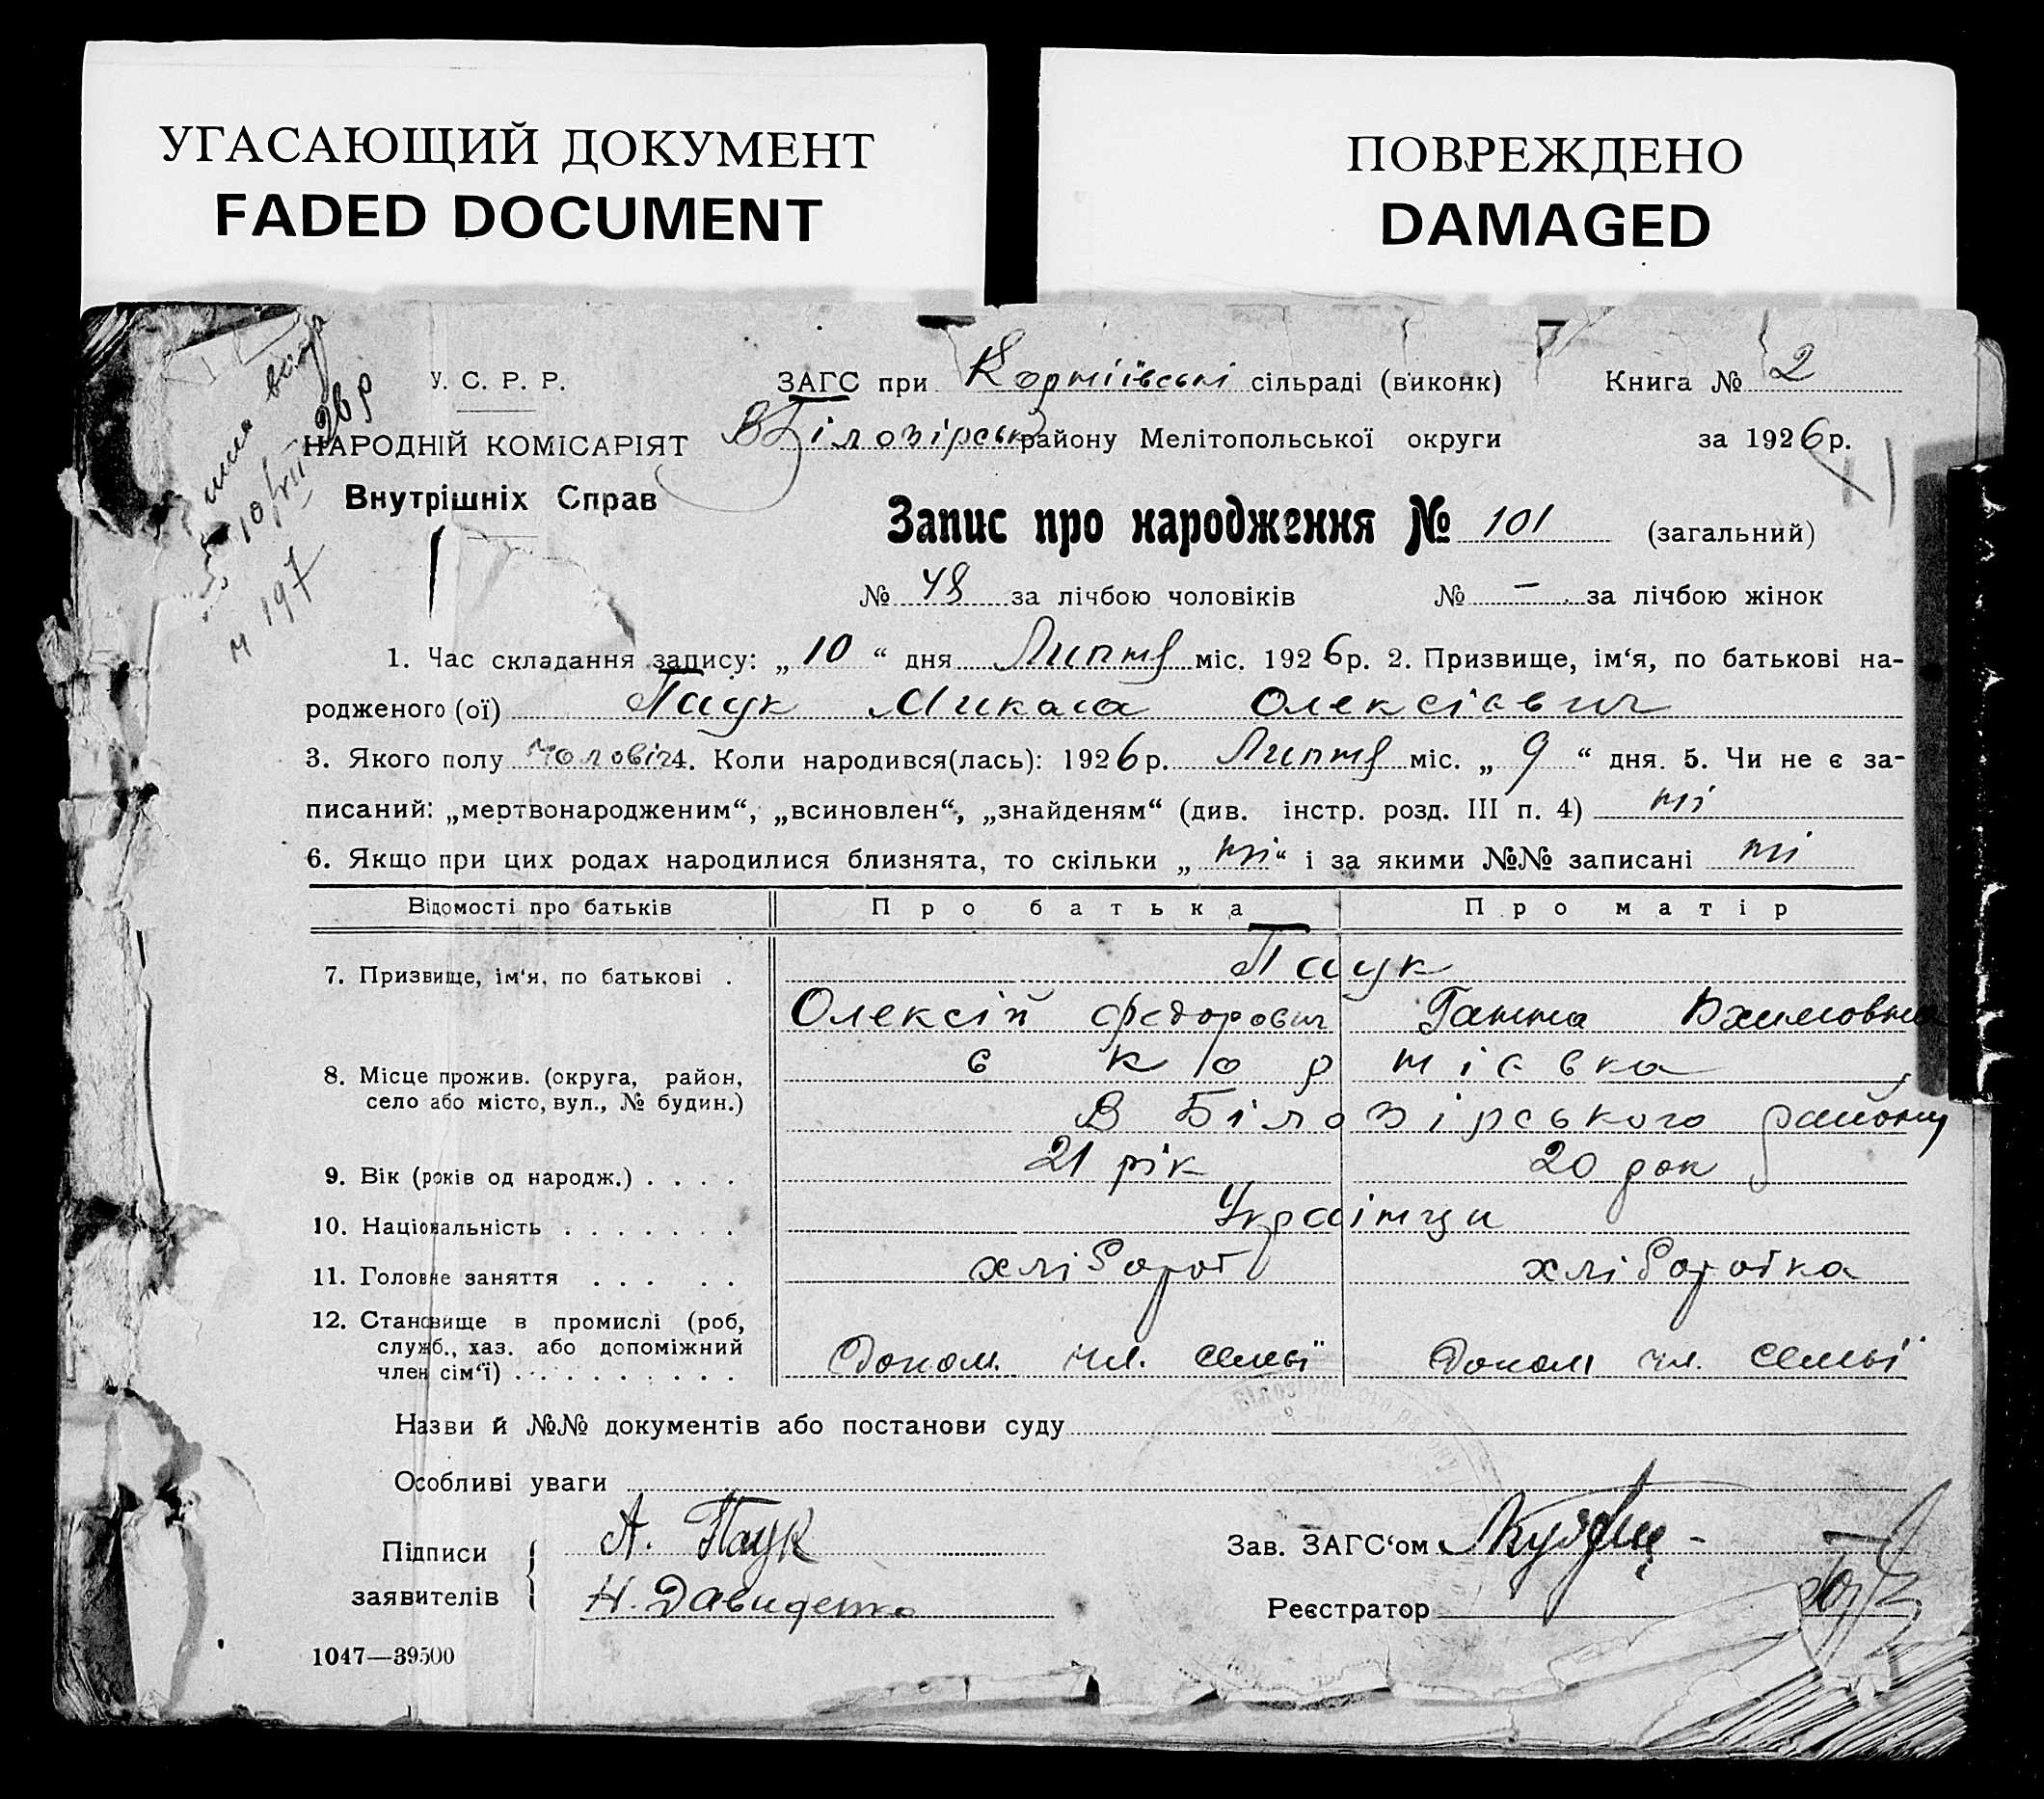 УГАСАЮЩИЙ ДОКУМЕНТ
FADED DOCUMENT
ПОВРЕЖДЕНО
DAMAGED
У. С. Р. Р.
НАРОДНІЙ КОМІСАРІЯТ
Внутрішніх Справ
10/VII 26 р
197
ЗАГС при Корніївські сільраді (виконк) Книга № 2
В Білозірськ району Мелітопольської округи за 1926 р.
Запис про народження № 101 (загальний)
№ 48 за лічбою чоловіків № — за лічбою жінок
1. Час складання запису: „ 10 “ дня Липня міс. 1926 р. 2. Призвище, ім‘я, по батькові на-
родженого (ої) Паук Микола Олексієвич
3. Якого полу чоловіч 4. Коли народився(лась): 1926 р. Липня міс. „ 9 “ дня. 5. Чи не є за-
писаний: „мертвонародженим“, „всиновлен“, „знайденям“ (див. інстр. розд. III п. 4) ні
6. Якщо при цих родах народилися близнята, то скільки „ ні “ і за якими №№ записані ні
Відомості про батьків Про батька Про матір
7. Призвище, ім‘я, по батькові . Паук
Олексій Федорович Ганна
8. Місце прожив. (округа, район, село або місто, вул., № будин.) с Корнієвка
В Білозірського району
9. Вік (років од народж.) . . . . 21 рік 20 рок
10. Національність . . . . . . . Українци
11. Головне заняття . . . . . хлібороб хлоборобка
12. Становище в промислі (роб,
служб., хаз. або допоміжний
член сім‘ї) . . . . . . . . . . Допом. чл. семьї Допом чл. семьї
Назви й №№ документів або постанови суду
Особливі уваги
Підписи заявителів А. Паук
Н. Давиденко
Зав. ЗАГС‘ом
Реєстратор
1047—39500